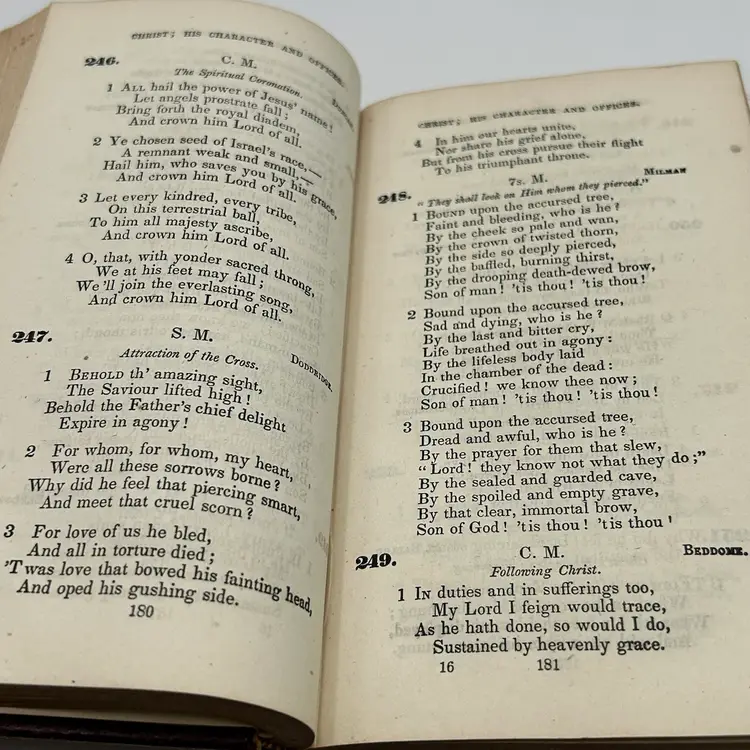 CHRIST; HIS CHARACTER AND OFFICES.
246. C. M.
The Spiritual Coronation.
1 ALL hail the power of Jesus' name!
Let angels prostrate fall;
Bring forth the royal diadem,
And crown him Lord of all.
2 Ye chosen seed of Israel's race,—
A remnant weak and small,—
Hail him, who saves you by his grace,
And crown him Lord of all.
3 Let every kindred, every tribe,
On this terrestrial ball,
To him all majesty ascribe,
And crown him Lord of all.
4 O, that, with yonder sacred throng,
We at his feet may fall;
We'll join the everlasting song,
And crown him Lord of all.
247. S. M. DODDRIDGE.
Attraction of the Cross.
1 BEHOLD th' amazing sight,
The Saviour lifted high!
Behold the Father's chief delight
Expire in agony!
2 For whom, for whom, my heart,
Were all these sorrows borne?
Why did he feel that piercing smart,
And meet that cruel scorn?
3 For love of us he bled,
And all in torture died;
'Twas love that bowed his fainting head,
And oped his gushing side.
180
CHRIST; HIS CHARACTER AND OFFICES.
4 In him our hearts unite,
Nor share his grief alone,
But from his cross pursue their flight
To his triumphant throne.
248. 7s. M. MILMAN
"They shall look on Him whom they pierced."
1 BOUND upon the accursed tree,
Faint and bleeding, who is he?
By the cheek so pale and wan,
By the crown of twisted thorn,
By the side so deeply pierced,
By the baffled, burning thirst,
By the drooping death-dewed brow,
Son of man! 'tis thou! 'tis thou!
2 Bound upon the accursed tree,
Sad and dying, who is he?
By the last and bitter cry,
Life breathed out in agony:
By the lifeless body laid
In the chamber of the dead:
Crucified! we know thee now;
Son of man! 'tis thou! 'tis thou!
3 Bound upon the accursed tree,
Dread and awful, who is he?
By the prayer for them that slew,
"Lord! they know not what they do;"
By the sealed and guarded cave,
By the spoiled and empty grave,
By that clear, immortal brow,
Son of God! 'tis thou! 'tis thou!
249. C. M. BEDDOME.
Following Christ.
1 IN duties and in sufferings too,
My Lord I feign would trace,
As he hath done, so would I do,
Sustained by heavenly grace.
16 181